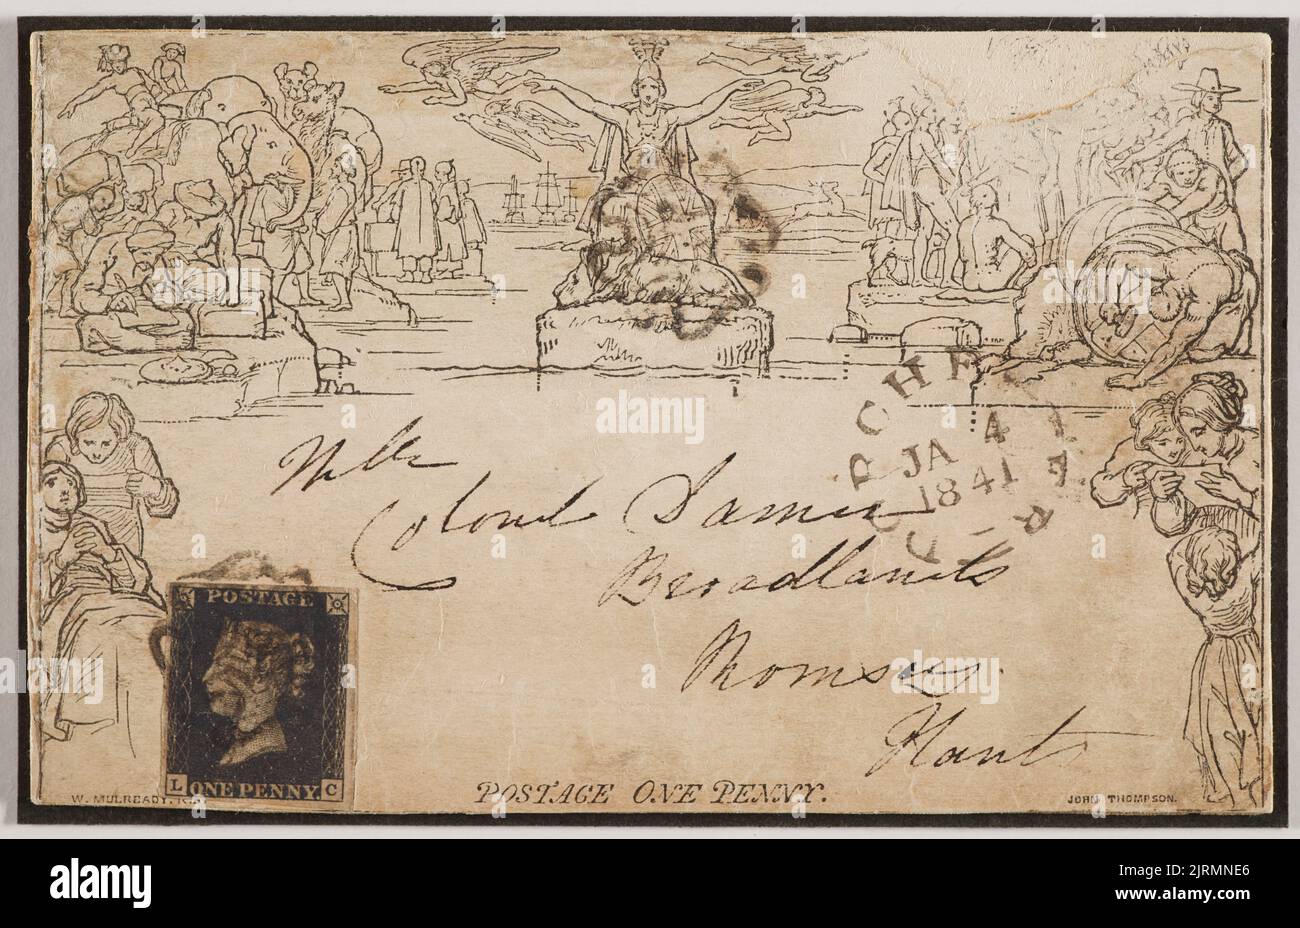 ROCHESTER
JA 4
1841
Colonel
Broadlands
Romsey
Hants
POSTAGE
L ONE PENNY C
W. MULREADY. R.
POSTAGE ONE PENNY.
JOHN THOMPSON.
alamy
Image ID: 2JRMNE6
www.alamy.com